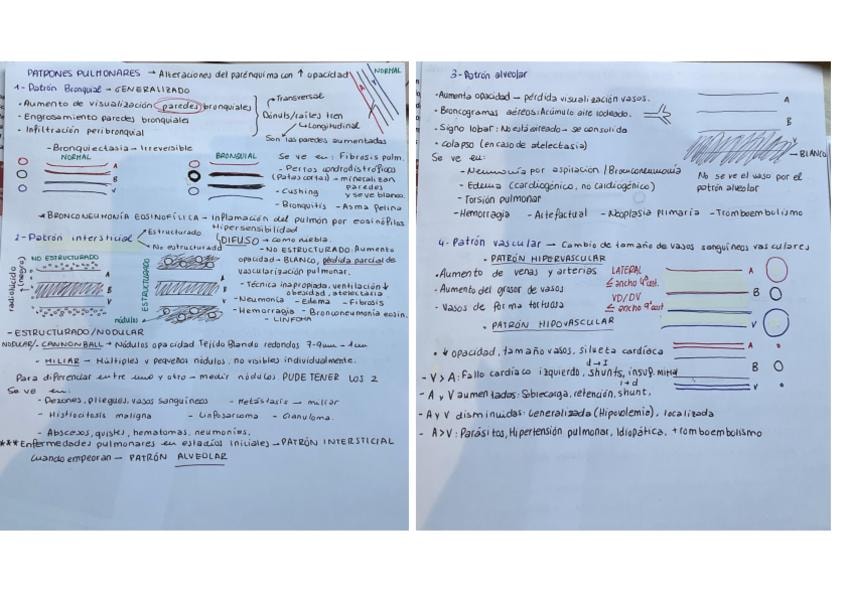 PATRONES PULMONARES → Alteraciones del parénquima con ↑ opacidad
NORMAL
1- Patrón Bronquial → GENERALIZADO
- Aumento de visualización paredes bronquiales
- Engrosamiento paredes bronquiales
- Infiltración peribronquial
→ Transversal
Dónuts/raíles tren
↳ Longitudinal
Son las paredes aumentadas
- Bronquiectasia → Irreversible
NORMAL
A
B
V
BRONQUIAL
Se ve en: Fibrosis pulm.
- Perros condrodistróficos
(Patas cortas) → mineralizan
paredes
y se ve blanco.
- Cushing
- Bronquitis - Asma felina
BRONCONEUMONÍA EOSINOFÍLICA → Inflamación del pulmón por eosinófilos
Hipersensibilidad
2- Patrón intersticial
Estructurado
No estructurado
DIFUSO → como niebla.
NO ESTRUCTURADO
radiolúcido (negro)
A
B
V
ESTRUCTURADO
A
B
V
nódulos
- NO ESTRUCTURADO: Aumento
opacidad → BLANCO, pérdida parcial de
vascularización pulmonar.
- Técnica inapropiada, ventilación ↓
obesidad, atelectasia
- Neumonía - Edema - Fibrosis
- Hemorragia - Bronconeumonía eosin.
- LINFOMA
- ESTRUCTURADO/NODULAR
NODULAR/- CANNONBALL → Nódulos opacidad Tejido Blando redondos 7-9mm → 1cm
- MILIAR → Múltiples y pequeños nódulos, no visibles individualmente.
Para diferenciar entre uno y otro → medir nódulos PUDE TENER LOS 2
Se ve en:
- Pezones, pliegues, vasos sanguíneos - Metástasis → miliar
- Histiocitosis maligna - Linfosarcoma - Granuloma.
- Abscesos, quistes, hematomas, neumonías.
*** Enfermedades pulmonares en estadíos iniciales → PATRÓN INTERSTICIAL
Cuando empeoran → PATRÓN ALVEOLAR
3- Patrón alveolar
- Aumenta opacidad → pérdida visualización vasos.
- Broncogramas aéreos: Acúmulo aire rodeado.
- Signo lobar: No está aireado → se consolida
- Colapso (en caso de atelectasia)
A
B
V
BLANCO
No se ve el vaso por el
patrón alveolar
Se ve en:
- Neumonía por aspiración / Bronconeumonía
- Edema (cardiogénico, no cardiogénico)
- Torsión pulmonar
- Hemorragia - Artefactual - Neoplasia Primaria - Tromboembolismo
4- Patrón vascular → Cambio de tamaño de vasos sanguíneos vasculares
- PATRÓN HIPERVASCULAR
- Aumento de venas y arterias
- Aumento del grosor de vasos
- Vasos de forma tortuosa
LATERAL
≤ ancho 4ª cost.
VD/DV
≤ ancho 9ª cost
A
B
V
- PATRÓN HIPOVASCULAR
• ↓ opacidad, tamaño vasos, silueta cardíaca
A
B
V
d → I
- V > A: Fallo cardíaco izquierdo, shunts, insuf. Mitral
I → d
- A y V aumentados: Sobrecarga, retención, shunt,
- A y V disminuidas: Generalizada (Hipovolemia), localizada
- A > V: Parásitos, Hipertensión pulmonar, Idiopática, tromboembolismo